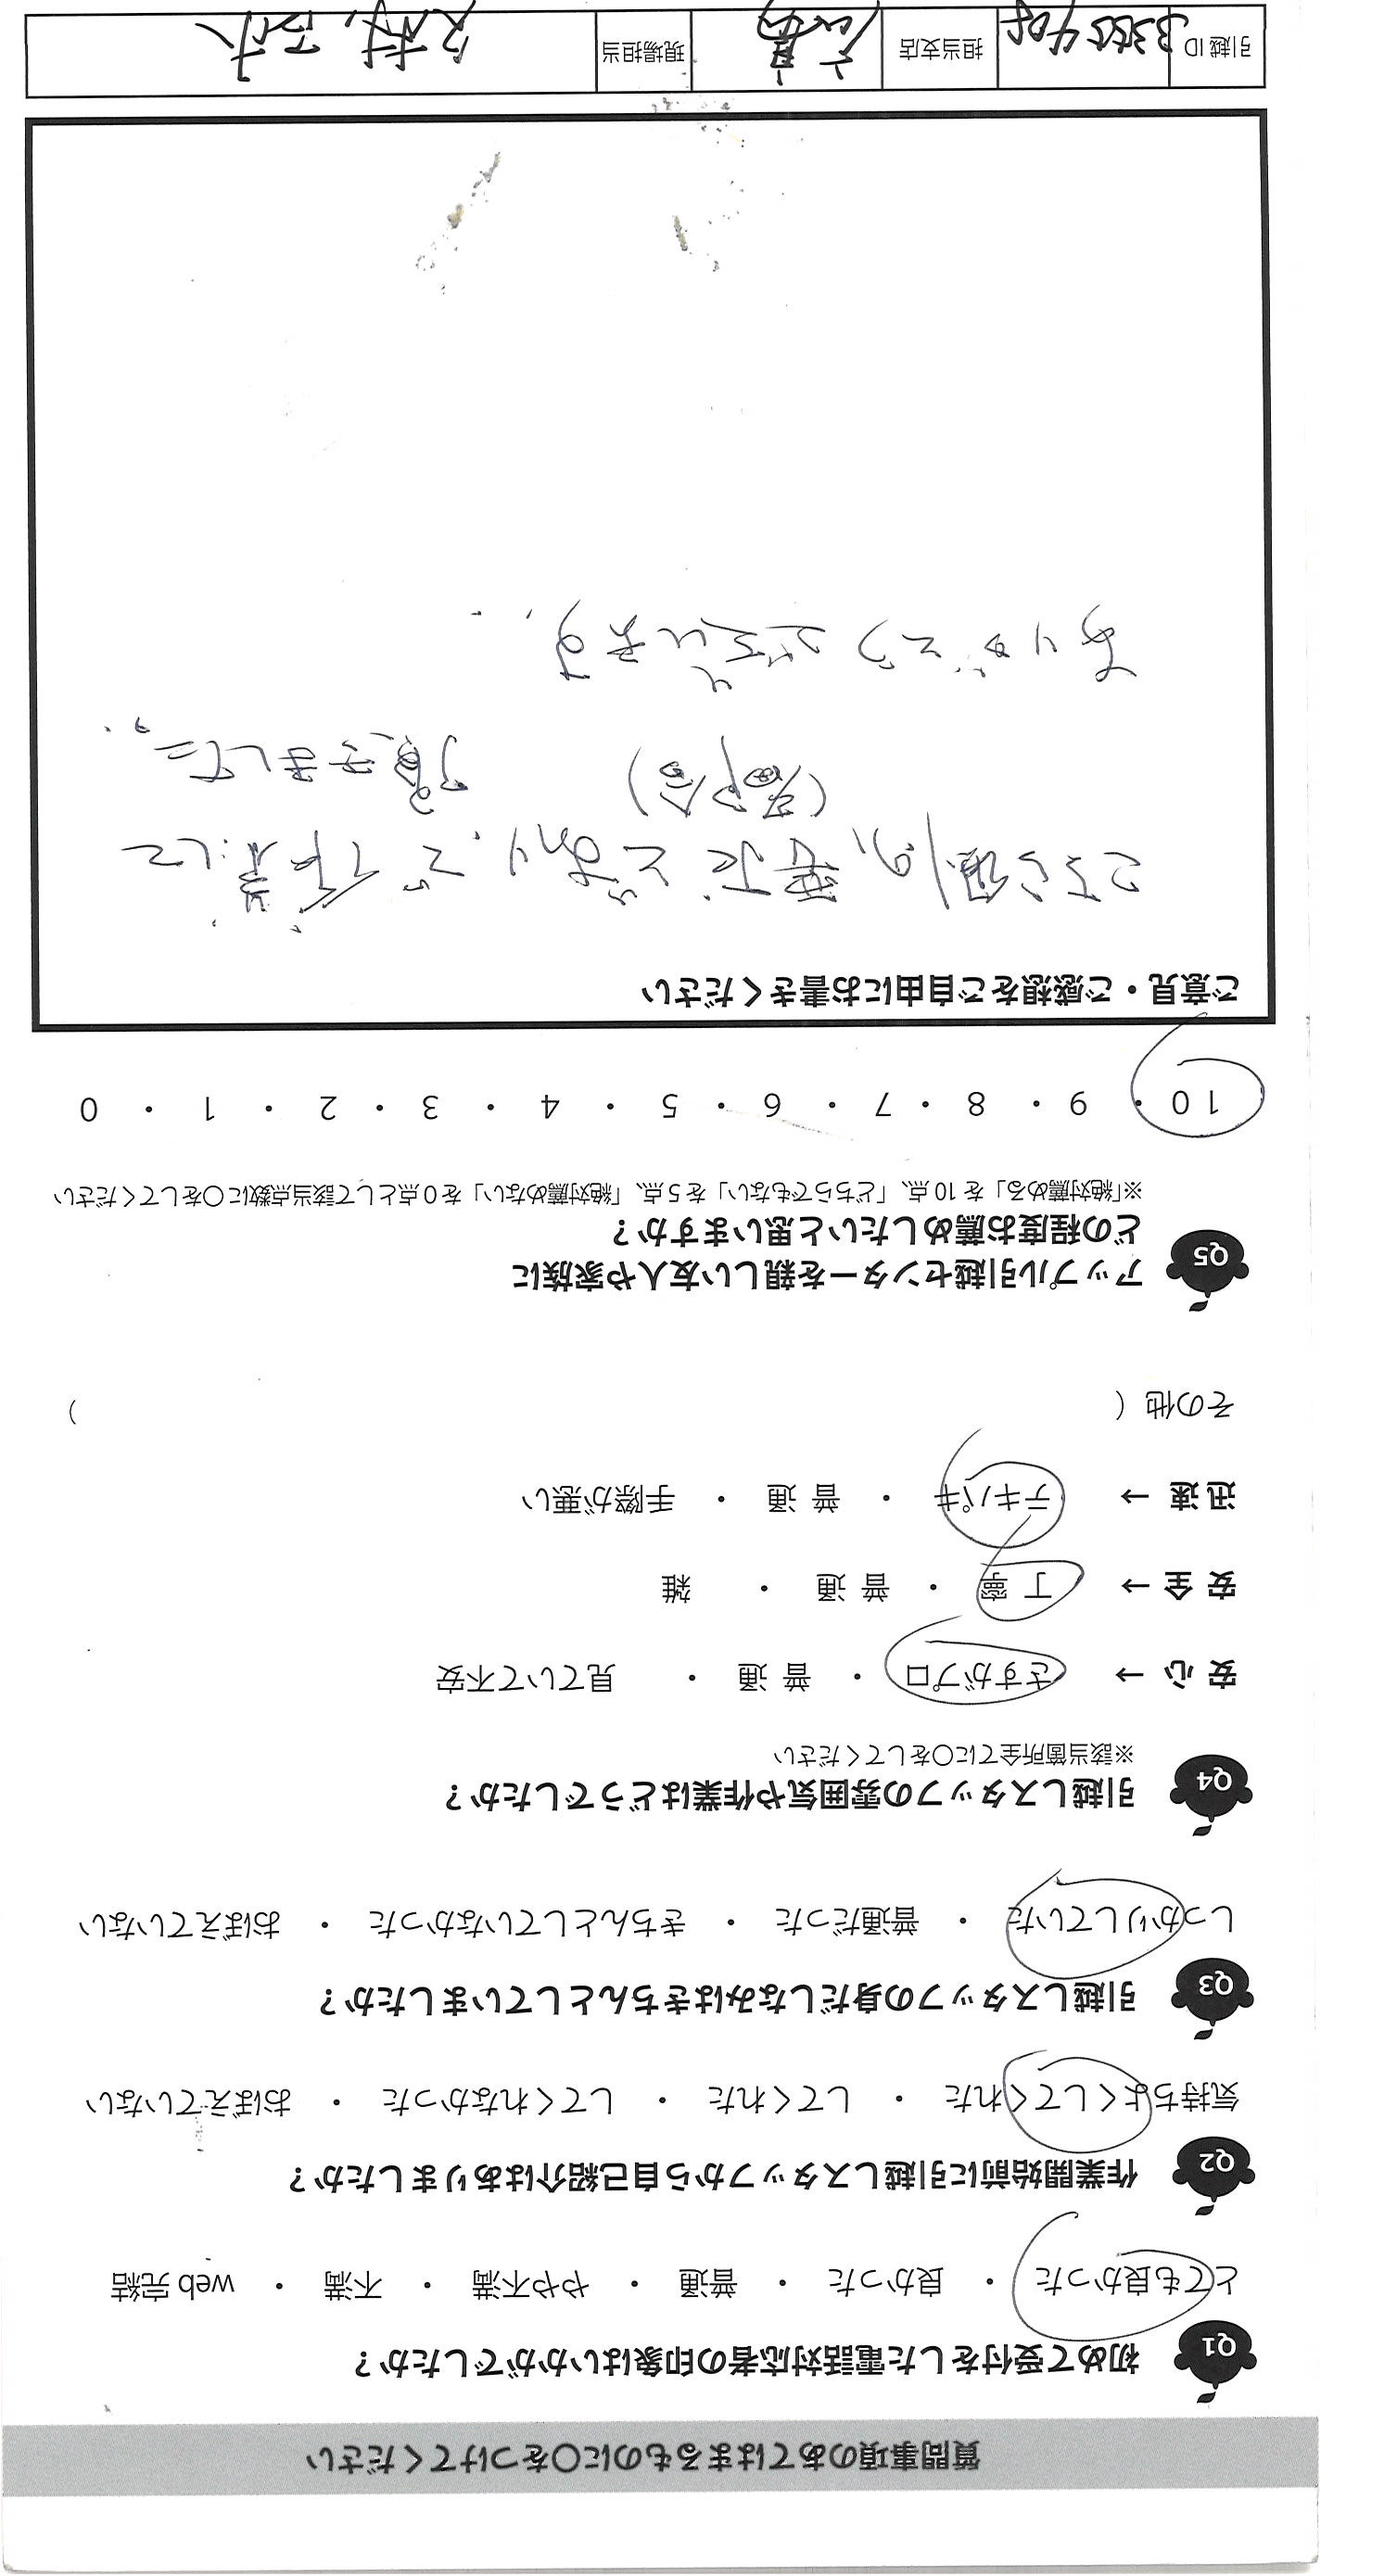 質問事項のあてはまるものに○をつけてください
Q1 初めて受付をした電話対応者の印象はいかがでしたか？
とても良かった ・ 良かった ・ 普通 ・ やや不満 ・ 不満 ・ web 完結
Q2 作業開始前に引越しスタッフから自己紹介はありましたか？
気持ちよくしてくれた ・ してくれた ・ してくれなかった ・ おぼえていない
Q3 引越しスタッフの身だしなみはきちんとしていましたか？
しっかりしていた ・ 普通だった ・ きちんとしていなかった ・ おぼえていない
Q4 引越しスタッフの雰囲気や作業はどうでしたか？
※該当箇所全てに○をしてください
安 心 → さすがプロ ・ 普 通 ・ 見ていて不安
安 全 → 丁 寧 ・ 普 通 ・ 雑
迅 速 → テキパキ ・ 普 通 ・ 手際が悪い
その他（ ）
Q5 アップル引越センターを親しい友人や家族に
どの程度お薦めしたいと思いますか？
※「絶対薦める」を 10 点、「どちらでもない」を 5 点、「絶対薦めない」を 0 点として該当点数に○をしてください
10 ・ 9 ・ 8 ・ 7 ・ 6 ・ 5 ・ 4 ・ 3 ・ 2 ・ 1 ・ 0
ご意見・ご感想をご自由にお書きください
こちら側の要求どおりで作業して
頂きました。
ありがとうございます。
引越 ID 担当支店 現場担当